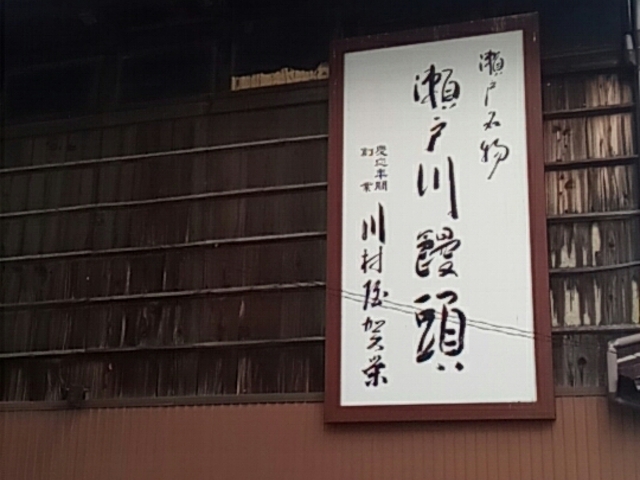 瀬戸名物
瀬戸川饅頭
慶応年間
創業
川村屋賀栄